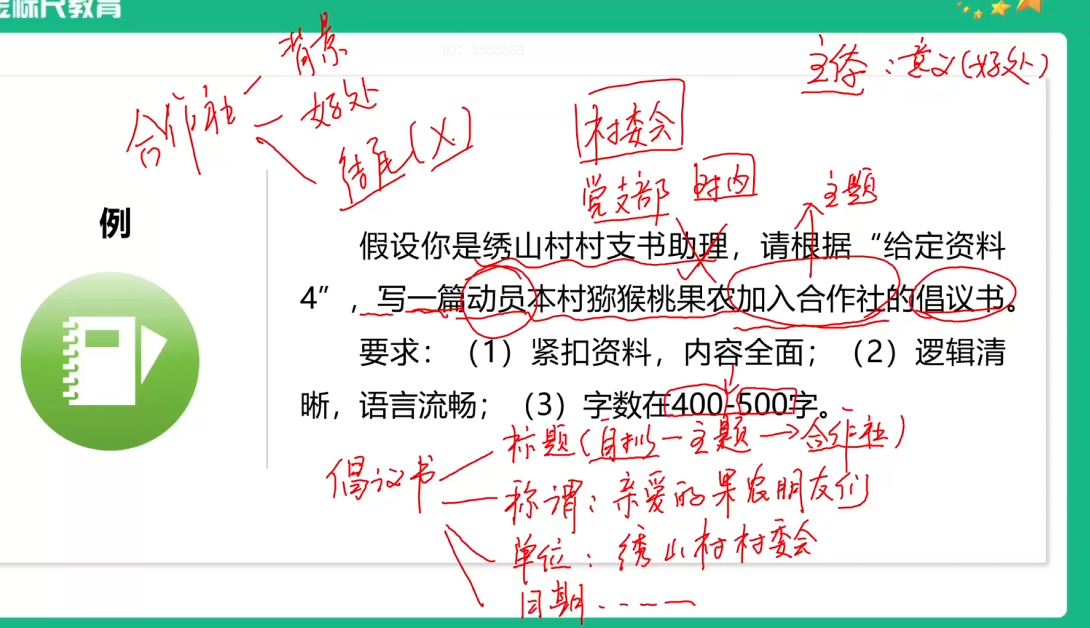 金标尺教育
ID：3555369
背景
主体：意义(好处)
合作社
好处
结尾(X)
村委会
党支部
村内
主题
例
假设你是绣山村村支书助理，请根据“给定资料
4”，写一篇动员本村猕猴桃果农加入合作社的倡议书。
要求：（1）紧扣资料，内容全面；（2）逻辑清
晰，语言流畅；（3）字数在400-500字。
标题(自拟—主题→合作社)
倡议书
称谓：亲爱的果农朋友们
单位：绣山村村委会
日期……